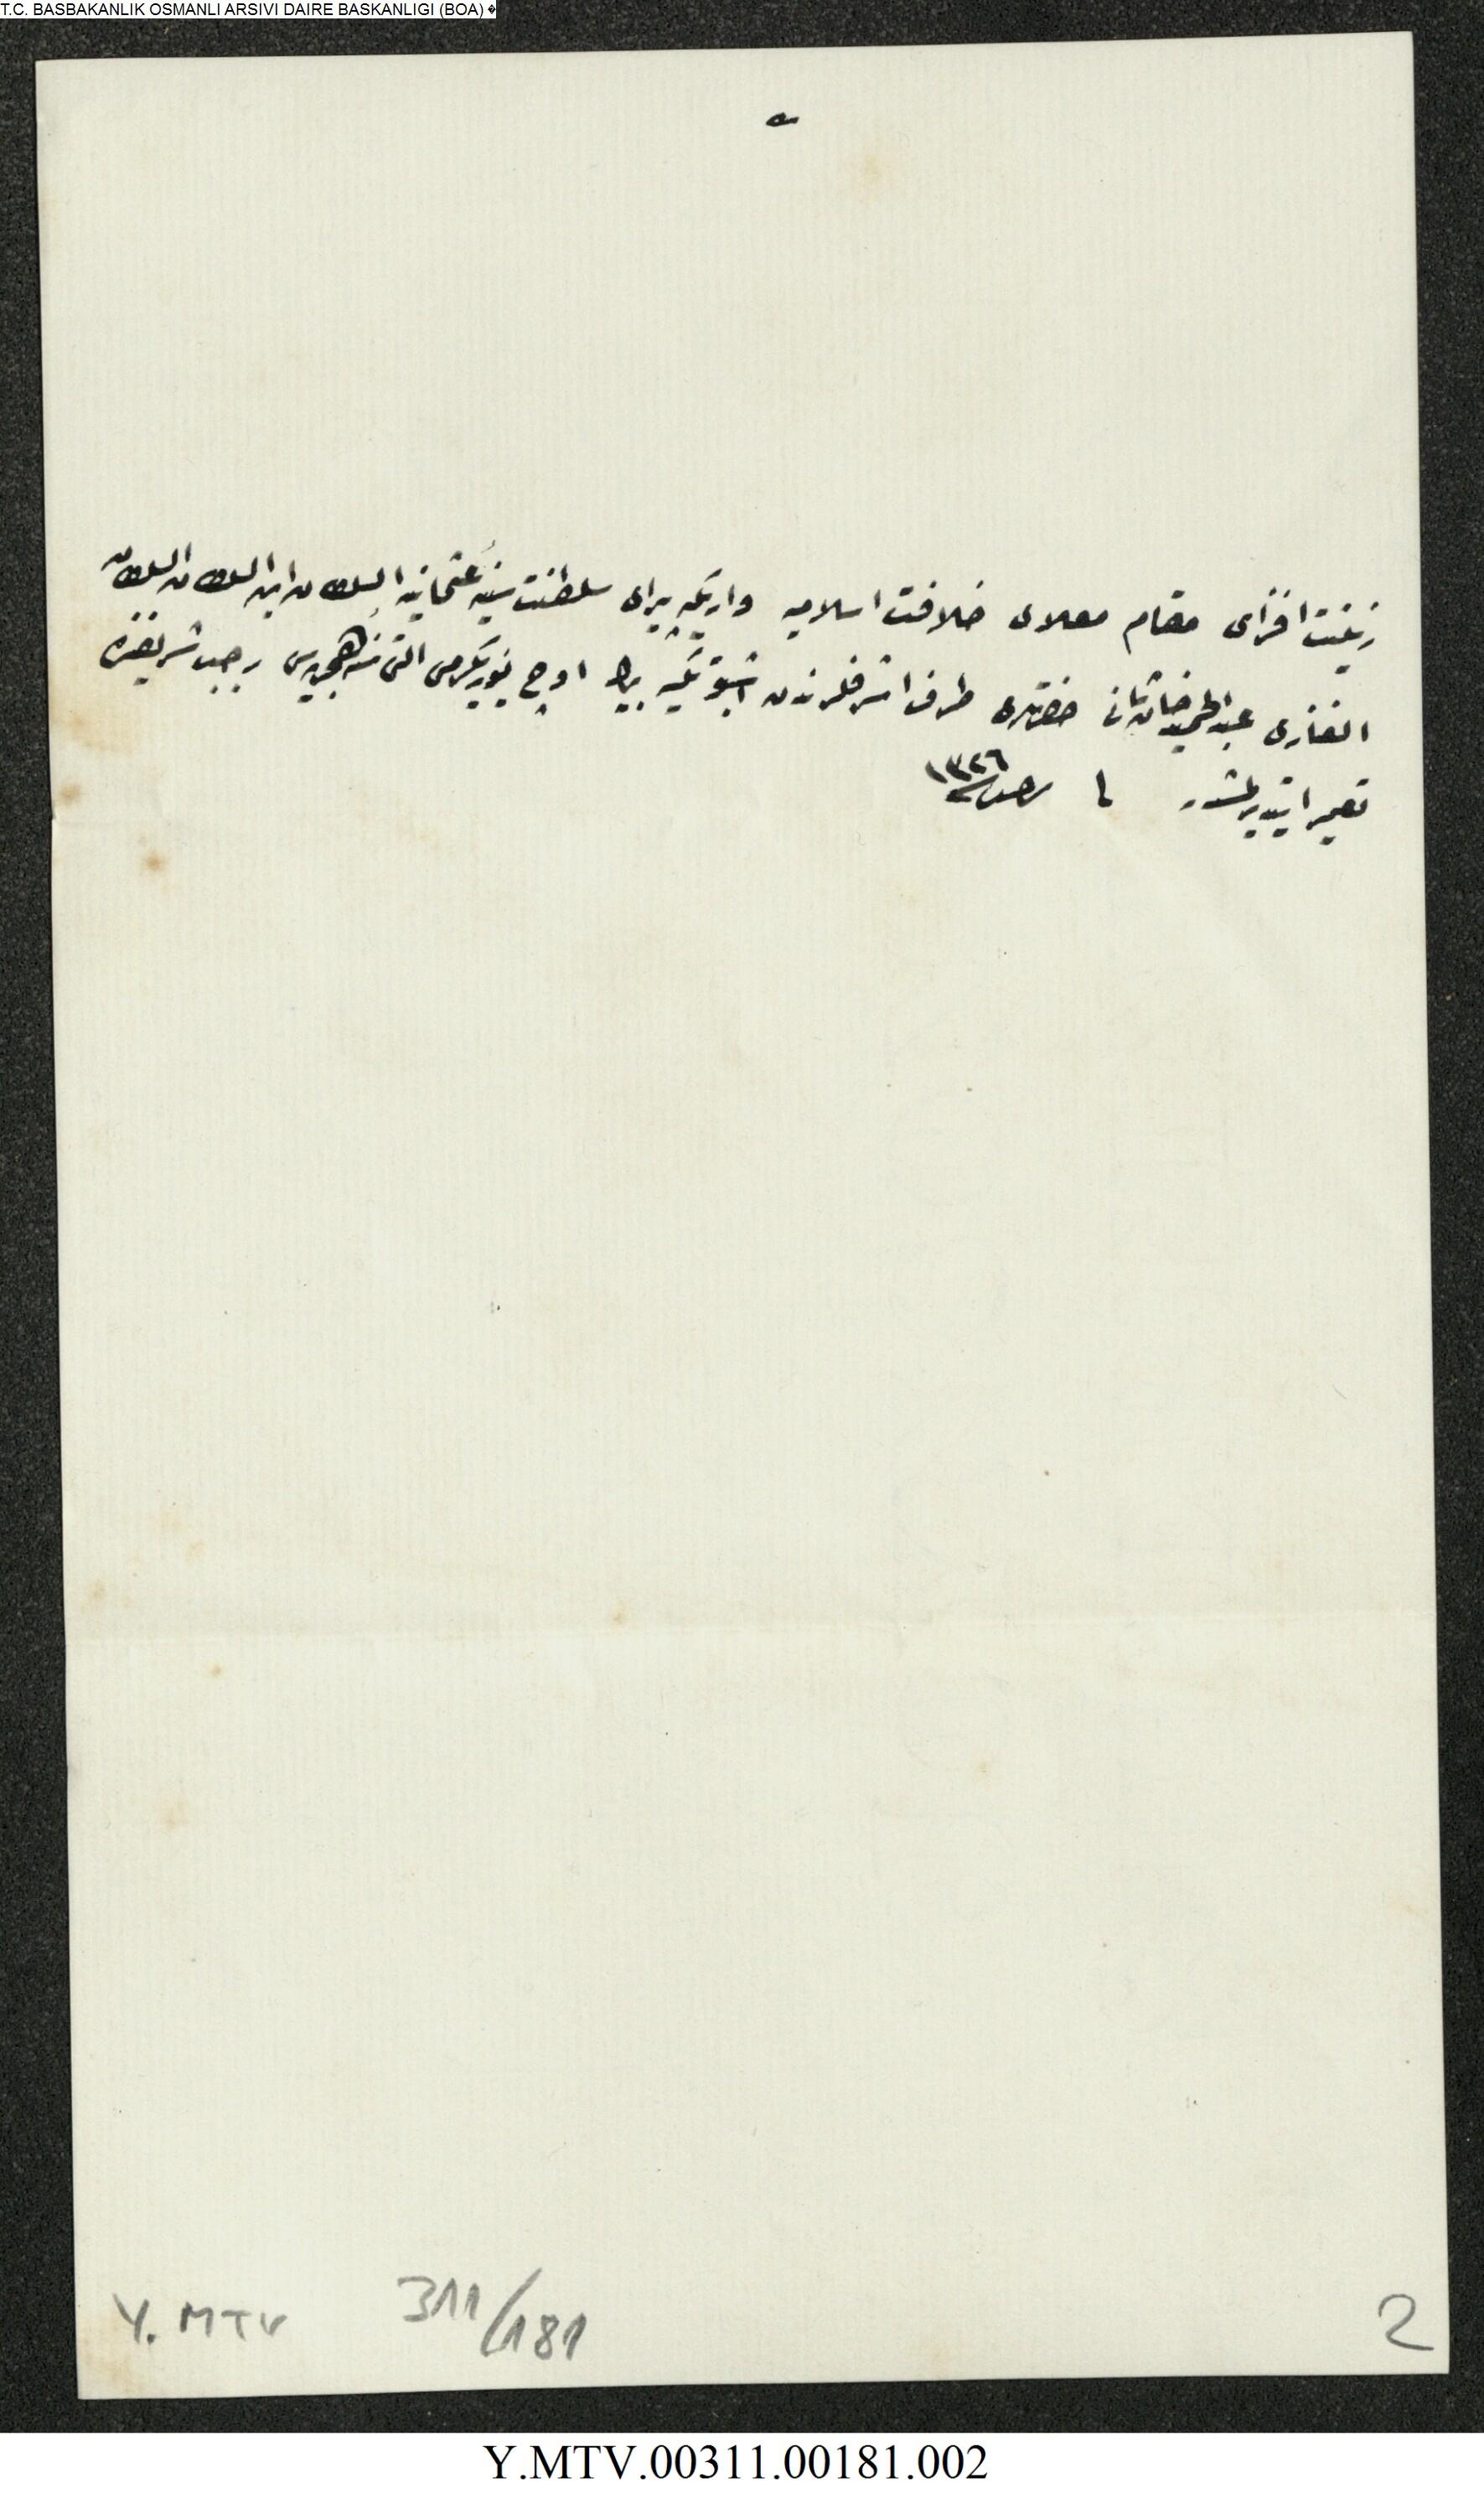 T.C. BASBAKANLIK OSMANLI ARSIVI DAIRE BASKANLIGI (BOA)
زينت افزاى مقام معلاى خلافت اسلاميه واريكه پيراى سلطنت سنيۀ عثمانيه السلطان ابن السلطان السلطان
الغازى عبدالحميد خان ثانى حضرتلرى طرف اشرفلرندن اشبو تكيه بيك اوچ يوز يكرمى التى سنۀ هجريه سى رجب شريفنده
تعمير ايتديرلمشدر سنه ١٣٢٦
Y. MTV 311/181 2
Y.MTV.00311.00181.002